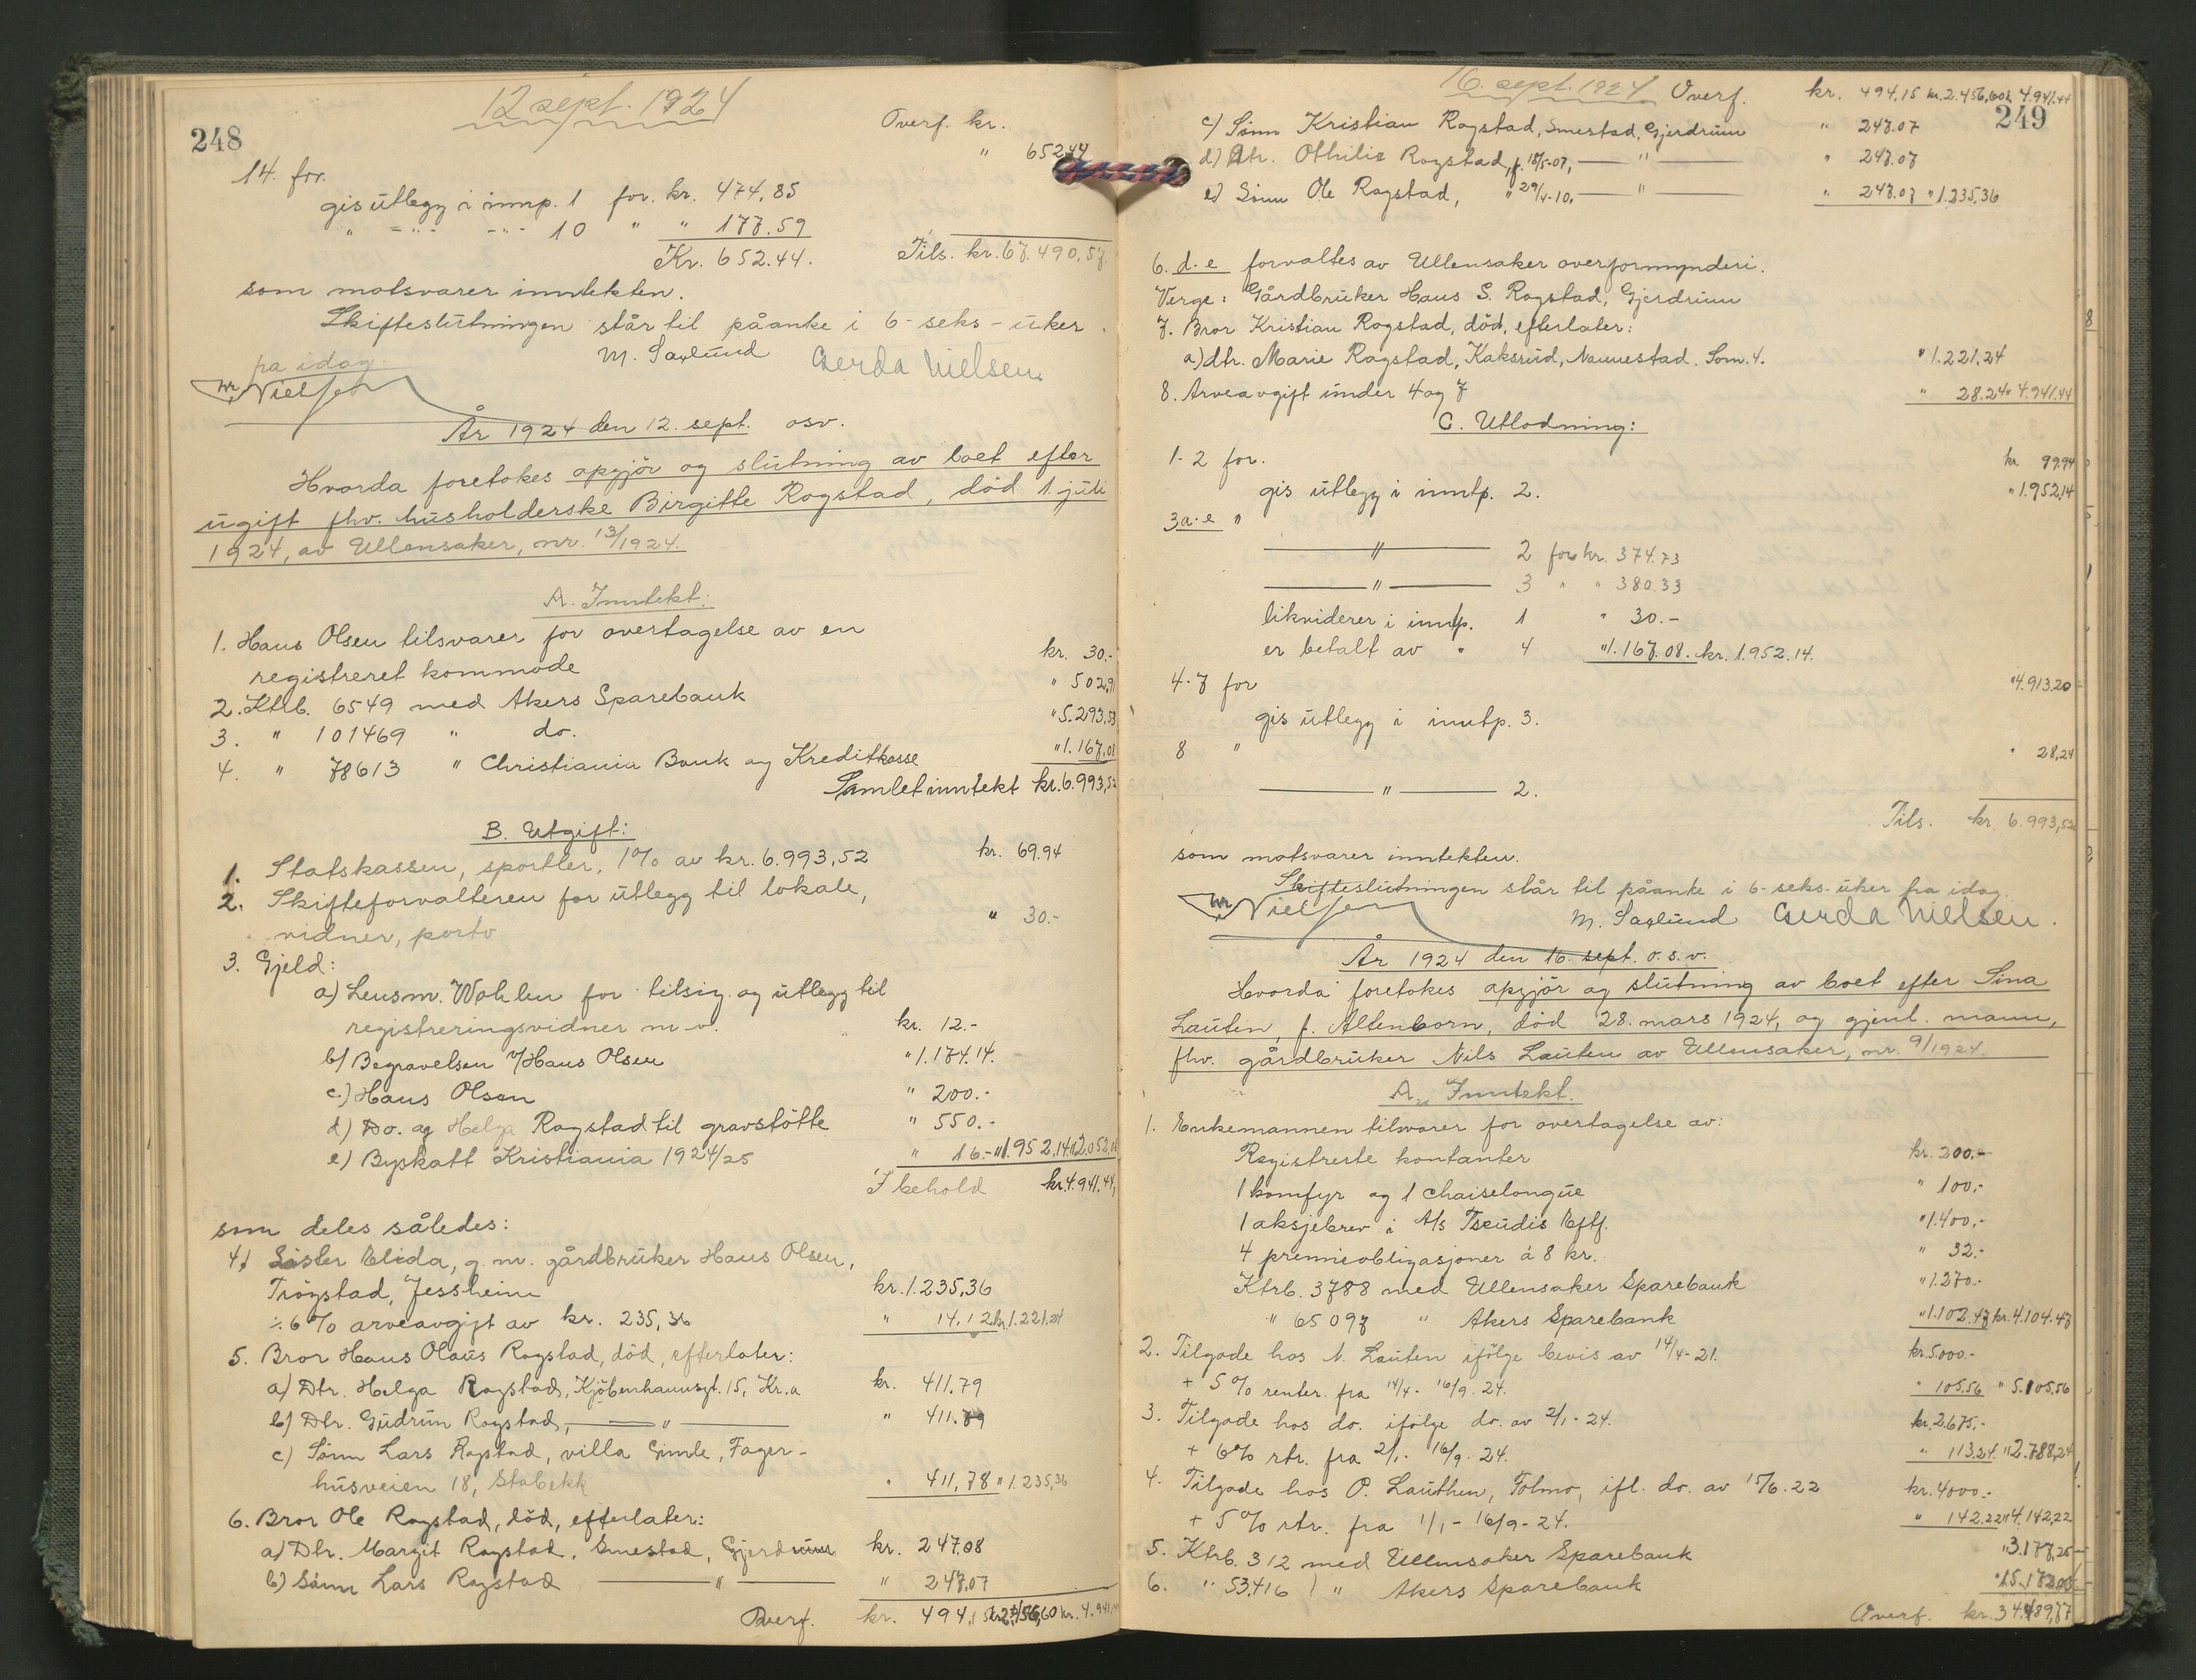 12 sept. 1924
248
Overf. kr.
14. for. " 652.44
gis utlegg i inntp. 1 for. kr. 474,85
" -"- -"- 10 " " 177.59
Kr. 652.44. Tils. kr. 67.490,57.
som motsvarer inntekten.
Skifteslutningen står til påanke i 6-seks-uker
fra idag. M. Saxlund Gerda Nielsen
Nielsen
År 1924 den 12. sept. osv.
Hvorda foretokes opgjör og slutning av boet efter
ugift fhv. husholderske Birgitte Rogstad, död 1. juli
1924, av Ullensaker, nr. 13/1924.
A. Inntekt:
1. Hans Olsen tilsvarer for overtagelse av en
registreret kommode kr. 30.-
2. Ktrb. 6549 med Akers Sparebank " 502,91
3. " 101469 " do. " 5.293,53
4. " 78613 " Christiania Bank og Kreditkasse " 1.167,08
Samlet inntekt kr. 6.993,52
B. Utgift:
1. Statskassen, sportler, 1% av kr. 6.993,52 kr. 69.94
2. Skifteforvalteren for utlegg til lokale,
vidner, porto " 30.-
3. Gjeld:
a) Lensm. Wohlen for tilsig. og utlegg til
registreringsvidner m.v. kr. 12.-
b) Begravelsen v/Hans Olsen " 1.174.14.
c.) Hans Olsen " 200.-
d) Do. og Helga Rogstad til gravstötte " 550.-
e) Byskatt Kristiania 1924/25 " 16.- " 1.952,14 " 2.052,08
I behold kr. 4.941.44,
som deles således:
4) Söster Elida, g. m. gårdbruker Hans Olsen,
Trögstad, Jessheim kr. 1.235,36
÷ 6% arveavgift av kr. 235,36 " 14,12 kr. 1.221.24
5. Bror Hans Olaus Rogstad, död, efterlater:
a) Dtr. Helga Rogstad, Kjöbenhavnsgt. 15, Kr.a kr. 411.79
b) Dtr. Gudrun Rogstad, — " — " 411.79
c) Sönn Lars Rogstad, villa Gimle, Fager-
husveien 18, Stabekk " 411,78 " 1.235,36
6. Bror Ole Rogstad, död, efterlater:
a) Dtr. Margit Rogstad, Smestad, Gjerdrum kr. 247.08
b) Sönn Lars Rogstad — " — " 247,07
Overf. kr. 494,15 kr. 2.456,60 kr. 4.941.44
16. sept. 1924 Overf. kr. 494,15 kr. 2.456,60 kr. 4.941.44
249
c) Sönn Kristian Rogstad, Smestad, Gjerdrum " 247.07
d) Dtr. Othilie Rogstad, f. 18/5-07, — " — " 247.07
e) Sönn Ole Rogstad, " 29/4-10, — " — " 247.07 " 1.235,36
6. d-e forvaltes av Ullensaker overformynderi.
Verge: Gårdbruker Hans S. Rogstad, Gjerdrum
7. Bror Kristian Rogstad, död, efterlater:
a) dtr. Marie Rogstad, Kaksrud, Nannestad. Som 4. " 1.221,24
8. Arveavgift under 4 og 7 " 28.24 " 4.941.44
C. Utlodning:
1-2 for. kr. 99.94
gis utlegg i inntp. 2.
3a-e " " 1.952,14
— " — 2 for kr. 374.73
— " — 3 " " 380.33
likviderer i inntp. 1 " 30.-
er betalt av " 4 " 1.167.08. kr. 1.952.14.
4-7 for " 4.913.20
gis utlegg i inntp. 3.
8 " " 28,24
— " — 2.
Tils. kr. 6.993,52
som motsvarer inntekten.
Skifteslutningen står til påanke i 6-seks-uker fra idag.
Nielsen M. Saxlund Gerda Nielsen.
År 1924 den 16. sept. o.s.v.
Hvorda foretokes opgjör og slutning av boet efter Sina
Lauten, f. Altenborn, död 28. mars 1924, og gjenl. mann,
fhv. gårdbruker Nils Lauten av Ullensaker, nr. 9/1924.
A. Inntekt.
1. Enkemannen tilsvarer for overtagelse av:
Registrerte kontanter kr. 200.-
1 komfyr og 1 chaiselongue " 100,-
1 aksjebrev i A/s Tscudis Eftf. " 1.400,-
4 premieobligasjoner á 8 kr. " 32.-
Ktrb. 3788 med Ullensaker Sparebank " 1.270.-
" 65097 " Akers Sparebank " 1.102.47 kr. 4.104.47
2. Tilgode hos N. Lauten ifölge bevis av 14/4-21. kr. 5.000.-
+ 5% renter. fra 14/4 - 16/9. 24. " 105.56 " 5.105.56
3. Tilgode hos do. ifölge do. av 2/1-24. kr. 2.675,-
+ 6% rtr. fra 2/1 - 16/9. 24. " 113.24 " 2.788,24
4. Tilgode hos P. Lauthen, Folmo, ifl. do. av 15/6.22 kr. 4000.-
+ 5% rtr. fra 1/1 - 16/9-24. " 142.22 " 4.142,22
5. Ktrb. 312 med Ullensaker Sparebank " 3.177,25
6. " 53416 " Akers Sparebank " 15.172.03
Overf. kr. 34.489,77